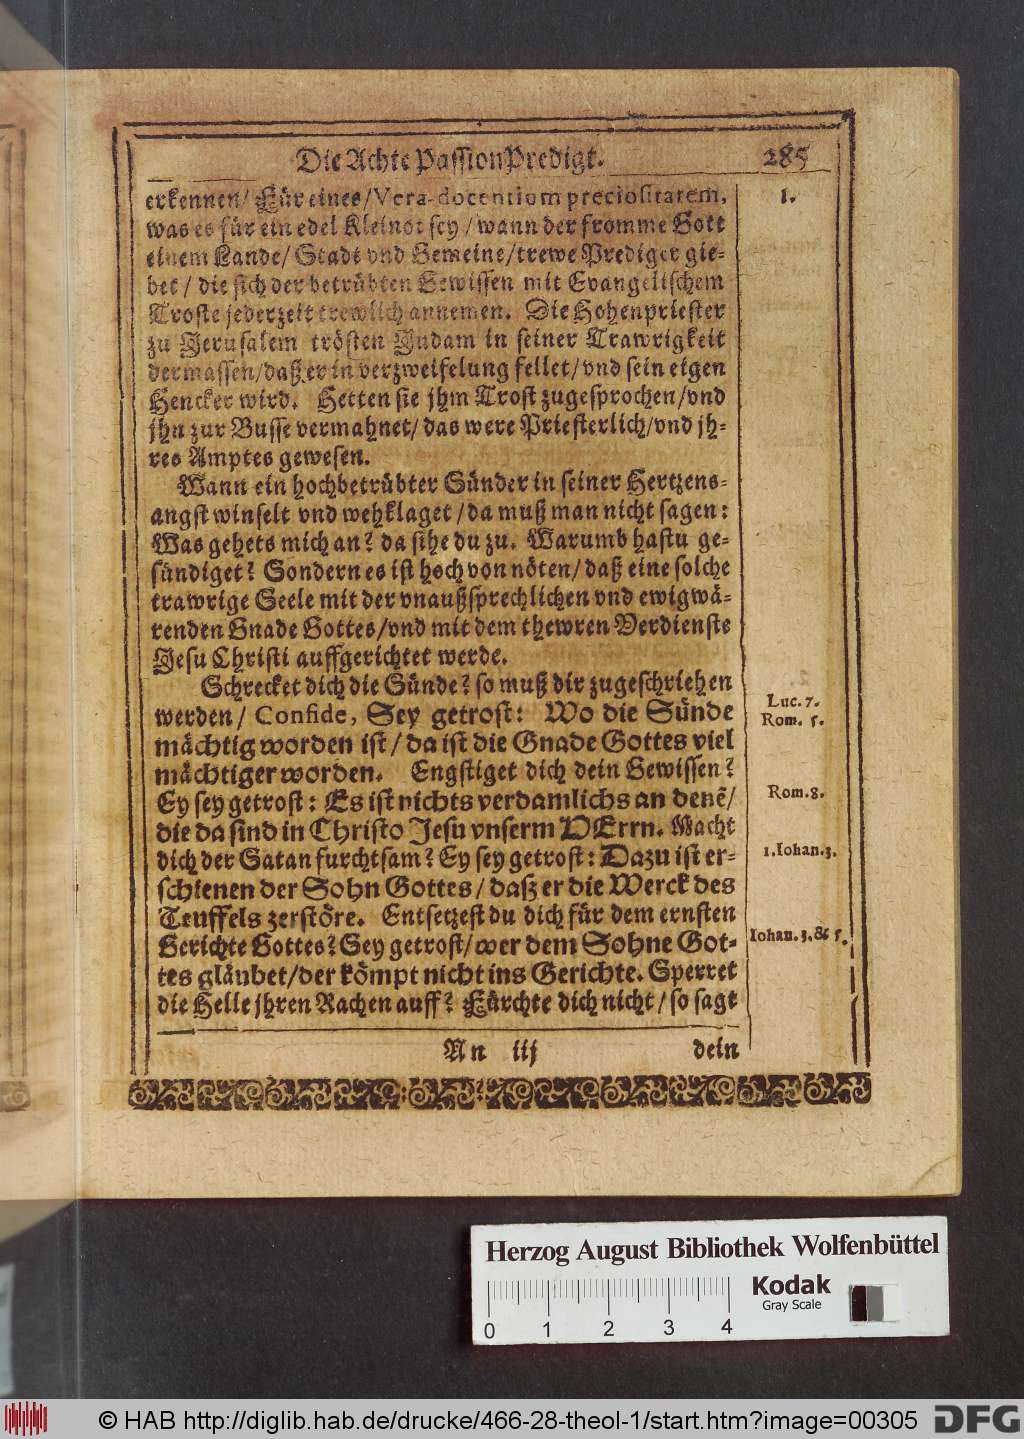 Die Achte PassionPredigt. 285
erkennen/ Für eines/Vera docentium preciositatem,
1.
was es für ein edel Kleinot sey/wann der fromme Gott
einem Lande/ Stadt vnd Gemeine/trewe Prediger gie-
bet/ die sich der betrübten Gewissen mit Evangelischem
Troste jederzeit trewlich annemen. Die Hohenpriester
zu Jerusalem trösten Judam in seiner Trawrigkeit
dermassen/daß er in verzweifelung fellet/vnd sein eigen
Hencker wird. Hetten sie jhm Trost zugesprochen/vnd
jhn zur Busse vermahnet/das were Priesterlich/vnd jh-
res Amptes gewesen.
Wann ein hochbetrübter Sünder in seiner Hertzens-
angst winselt vnd wehklaget/da muß man nicht sagen:
Was gehets mich an? da sihe du zu. Warumb hastu ge-
sündiget? Sondern es ist hoch von nöten/daß eine solche
trawrige Seele mit der vnaußsprechlichen vnd ewigwä-
renden Gnade Gottes/vnd mit dem thewren Verdienste
Jesu Christi auffgerichtet werde.
Schrecket dich die Sünde? so muß dir zugeschriehen
werden/ Confide, Sey getrost: Wo die Sünde
Luc. 7.
Rom. 5.
mächtig worden ist/da ist die Gnade Gottes viel
mächtiger worden. Engstiget dich dein Gewissen?
Ey sey getrost: Es ist nichts verdamlichs an denē/
Rom. 8.
die da sind in Christo Jesu vnserm HErrn. Macht
dich der Satan furchtsam? Ey sey getrost: Dazu ist er-
1. Iohan. 3.
schienen der Sohn Gottes/daß er die Werck des
Teuffels zerstöre. Entsetzest du dich für dem ernsten
Gerichte Gottes? Sey getrost/wer dem Sohne Got-
Iohan. 3. & 5.
tes gläubet/der kömpt nicht ins Gerichte. Sperret
die Helle jhren Rachen auff? Fürchte dich nicht/so sagt
Nn iij dein
Herzog August Bibliothek Wolfenbüttel
Kodak
Gray Scale
0 1 2 3 4
© HAB http://diglib.hab.de/drucke/466-28-theol-1/start.htm?image=00305
DFG